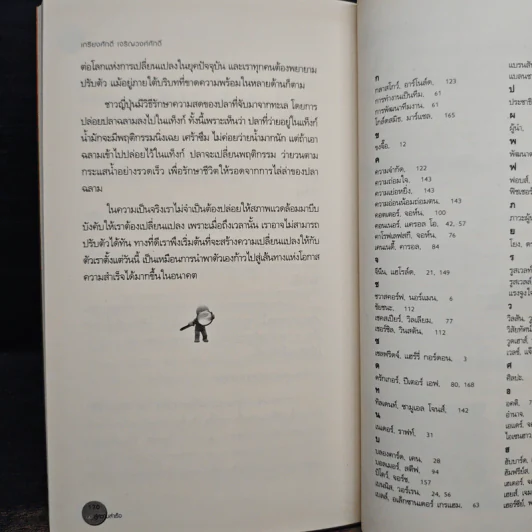 เกรียงศักดิ์ เจริญวงศ์ศักดิ์
ต่อโลกแห่งการเปลี่ยนแปลงในยุคปัจจุบัน และเราทุกคนต้องพยายาม
ปรับตัว แม้อยู่ภายใต้บริบทที่ขาดความพร้อมในหลายด้านก็ตาม
ชาวญี่ปุ่นมีวิธีรักษาความสดของปลาที่จับมาจากทะเล โดยการ
ปล่อยปลาฉลามลงไปในแท็งก์ ทั้งนี้เพราะเห็นว่า ปลาที่ว่ายอยู่ในแท็งก์
น้ำมักจะมีพฤติกรรมนิ่งเฉย เศร้าซึม ไม่ค่อยว่ายน้ำมากนัก แต่ถ้าเอา
ฉลามเข้าไปปล่อยไว้ในแท็งก์ ปลาจะเปลี่ยนพฤติกรรม ว่ายวนตาม
กระแสน้ำอย่างรวดเร็ว เพื่อรักษาชีวิตให้รอดจากการไล่ล่าของปลา
ฉลาม
ในความเป็นจริงเราไม่จำเป็นต้องปล่อยให้สภาพแวดล้อมมาบีบ
บังคับให้เราต้องเปลี่ยนแปลง เพราะเมื่อถึงเวลานั้น เราอาจไม่สามารถ
ปรับตัวได้ทัน ทางที่ดีเราพึงเริ่มต้นที่จะสร้างความเปลี่ยนแปลงให้กับ
ตัวเราตั้งแต่วันนี้ เป็นเหมือนการนำพาตัวเองก้าวไปสู่เส้นทางแห่งโอกาส
ความสำเร็จได้มากขึ้นในอนาคต
ก
กลาสโกว์, อาร์โนล์ด, 123
การทำงานเป็นทีม, 61
การพัฒนาทีมงาน, 61
โกล์ดสมิธ, มาร์แชล, 165
ข
ขงจื้อ, 12
ค
ความจำกัด, 122
ความย่อมใจ, 143
ความเย่อหยิ่ง, 143
ความอ่อนน้อมถ่อมตน, 143
คอตเตอร์, จอห์น, 100
คอนเนอร์, แครอล โอ, 42, -57
คาโรเฟเฟสกี, จอห์น, 76
เคนเนดี้, คารอล, 84
จ
จีนีน, แฮโรลด์, 21, 149
ช
ชวาสคอร์ฟ, นอร์แมน, 6
ชัยชนะ, 112
เชคสเปียร์, วิลเลียม, 77
เชอร์ชิล, วินสตัน, 112
ซ
เซลฟริดจ์, แฮร์รี่ กอร์ดอน, 3
ด
ดรักเกอร์, ปีเตอร์ เอฟ, 80, 168
ท
ทิลเดนท์, ซามูเอล โจนส์, 142
น
เนเดอร์, ราฟท์, 31
บ
บลองคาร์ด, เคน, 28
บอลเมอร์, สตีฟ, 94
บิโดว์, จอร์ช, 157
เบนนิส, วอร์เรน, 24, 56
เบลล์, อเล็กซานเดอร์ เกรแฮม, 63
ป
ประชาธิ
ผ
ผู้นำ,
พ
พัฒนาค
ฟ
ฟอบส์,
ฟิชเชอร์
ภ
ภาวะผู้น
ย
โยง, ค
ร
รูสเวลท์
รูสเวลล์
แรงจูงใจ
ว
วิลสัน, วู
วิสัยทัศน์
วูดเฮาส์,
เวลช์, แจ็
ศ
ศิลปะ,
อ
อคติ, 7
อำนาจ,
เอแคร์, จอ
ไอเซนฮาว